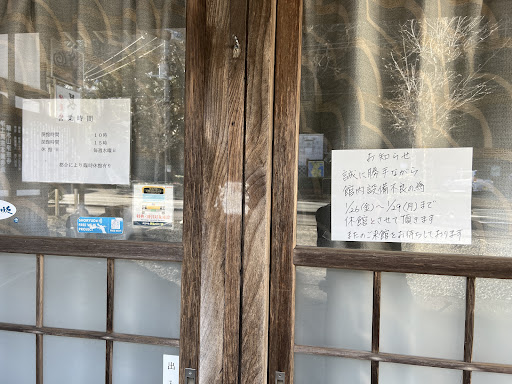 営業時間
開館時間 10時
閉館時間 15時
休館日 毎週木曜日
都合により臨時休館有り
お知らせ
誠に勝手ながら
館内設備不良の為
1/26(金)～1/29(月)まで
休館とさせて頂きます
またのご来館をお待ちしております
出